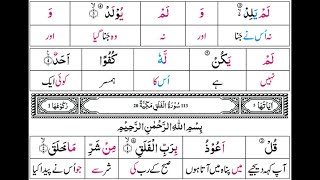 لَمْ يَلِدْ ۙ وَ لَمْ يُوْلَدْ ۙ وَ
نہ اُس نے جنا اور نہ وہ جنا گیا اور
لَمْ يَكُنْ لَّهٗ كُفُوًا اَحَدٌ
نہیں ہے اُس کا ہمسر کوئی ایک
اٰیَاتُهَا ٥ ١١٣ سُوْرَةُ الْفَلَقِ مَكِّيَّةٌ ٢٠ رُكُوْعُهَا ١
بِسْمِ اللهِ الرَّحْمٰنِ الرَّحِيْمِ
قُلْ اَعُوْذُ بِرَبِّ الْفَلَقِ مِنْ شَرِّ مَا خَلَقَ
آپ کہہ دیجیے میں پناہ میں آتا ہوں صبح کے رب کی شر سے جو اُس نے پیدا کیا